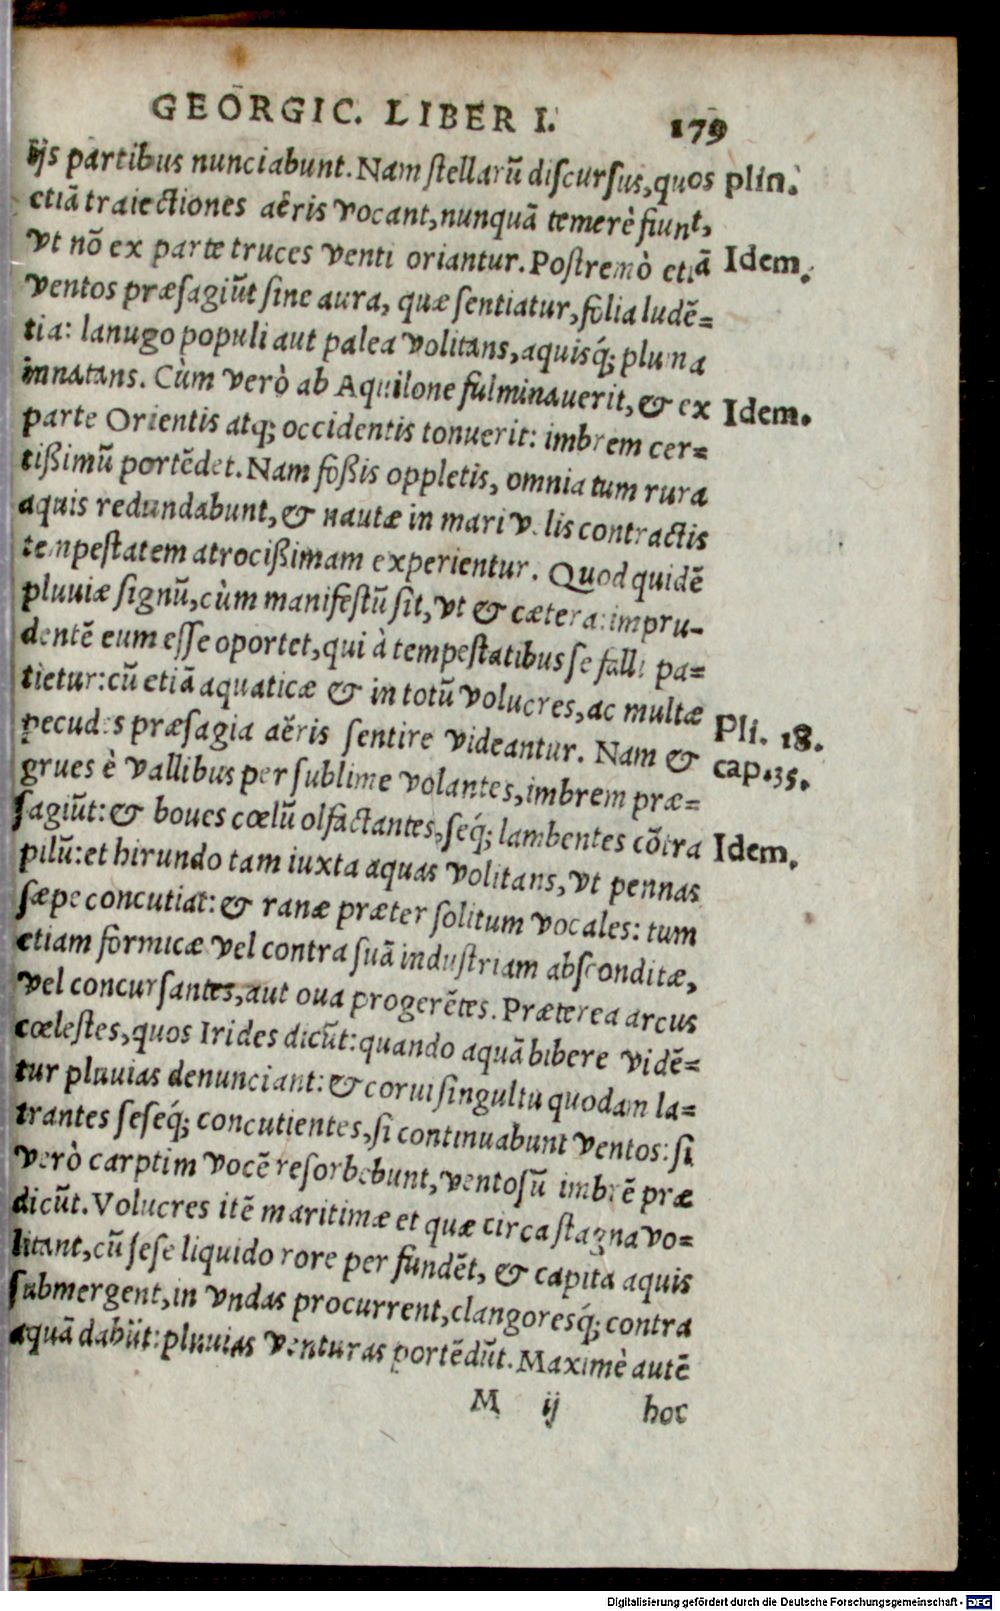 GEORGIC. LIBER I. 179
ijs partibus nunciabunt. Nam stellarũ discursus, quos plin.
etiã traiectiones aëris vocant, nunquã temerè fiunt,
vt nõ ex parte truces venti oriantur. Postremò etiã Idem.
ventos præsagiũt sine aura, quæ sentiatur, folia ludẽ=
tia: lanugo populi aut palea volitans, aquisq́; pluma
innatans. Cùm verò ab Aquilone fulminauerit, & ex Idem.
parte Orientis atq; occidentis tonuerit: imbrem cer=
tißimũ portẽdet. Nam foßis oppletis, omnia tum rura
aquis redundabunt, & nautæ in mari v. lis contractis
tempestatem atrocißimam experientur. Quod quidẽ
pluuiæ signũ, cùm manifestũ sit, vt & cætera: impru-
dentẽ eum esse oportet, qui à tempestatibus se falli pa=
tietur: cũ etiã aquaticæ & in totũ volucres, ac multæ
pecudes præsagia aëris sentire videantur. Nam & Pli. 18.
grues è vallibus per sublime volantes, imbrem præ= cap. 35.
sagiũt: & boues cœlũ olfactantes, seq́; lambentes cõtra Idem.
pilũ: et hirundo tam iuxta aquas volitans, vt pennas
sæpe concutiat: & ranæ præter solitum vocales: tum
etiam formicæ vel contra suã industriam absconditæ,
vel concursantes, aut oua progerẽtes. Præterea arcus
cœlestes, quos Irides dicũt: quando aquã bibere vidẽ=
tur pluuias denunciant: & corui singultu quodam la=
trantes seseq́; concutientes, si continuabunt ventos: si
verò carptim vocẽ resorbebunt, ventosũ imbrẽ præ
dicũt. Volucres itẽ maritimæ et quæ circa stagna vo=
litant, cũ sese liquido rore per fundẽt, & capita aquis
submergent, in vndas procurrent, clangoresq́; contra
aquã dabũt: pluuias venturas portẽdũt. Maximè autẽ
M ij hoc
Digitalisierung gefördert durch die Deutsche Forschungsgemeinschaft - DFG